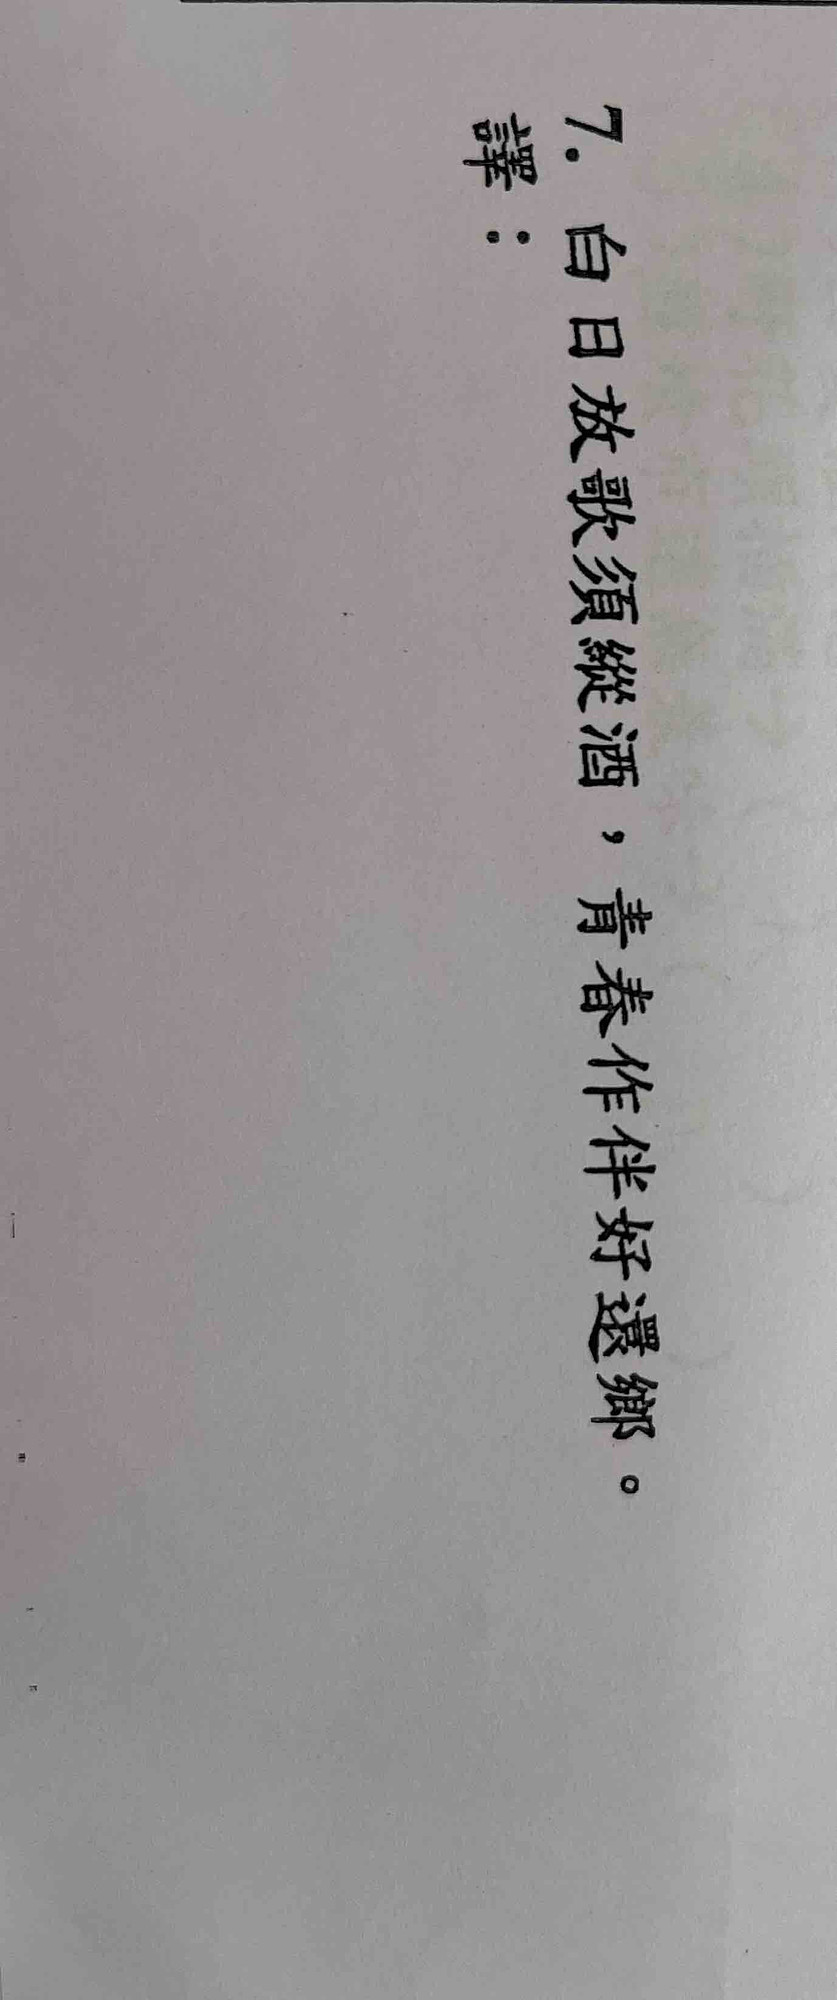 7. 白日放歌須縱酒，青春作伴好還鄉。
譯：